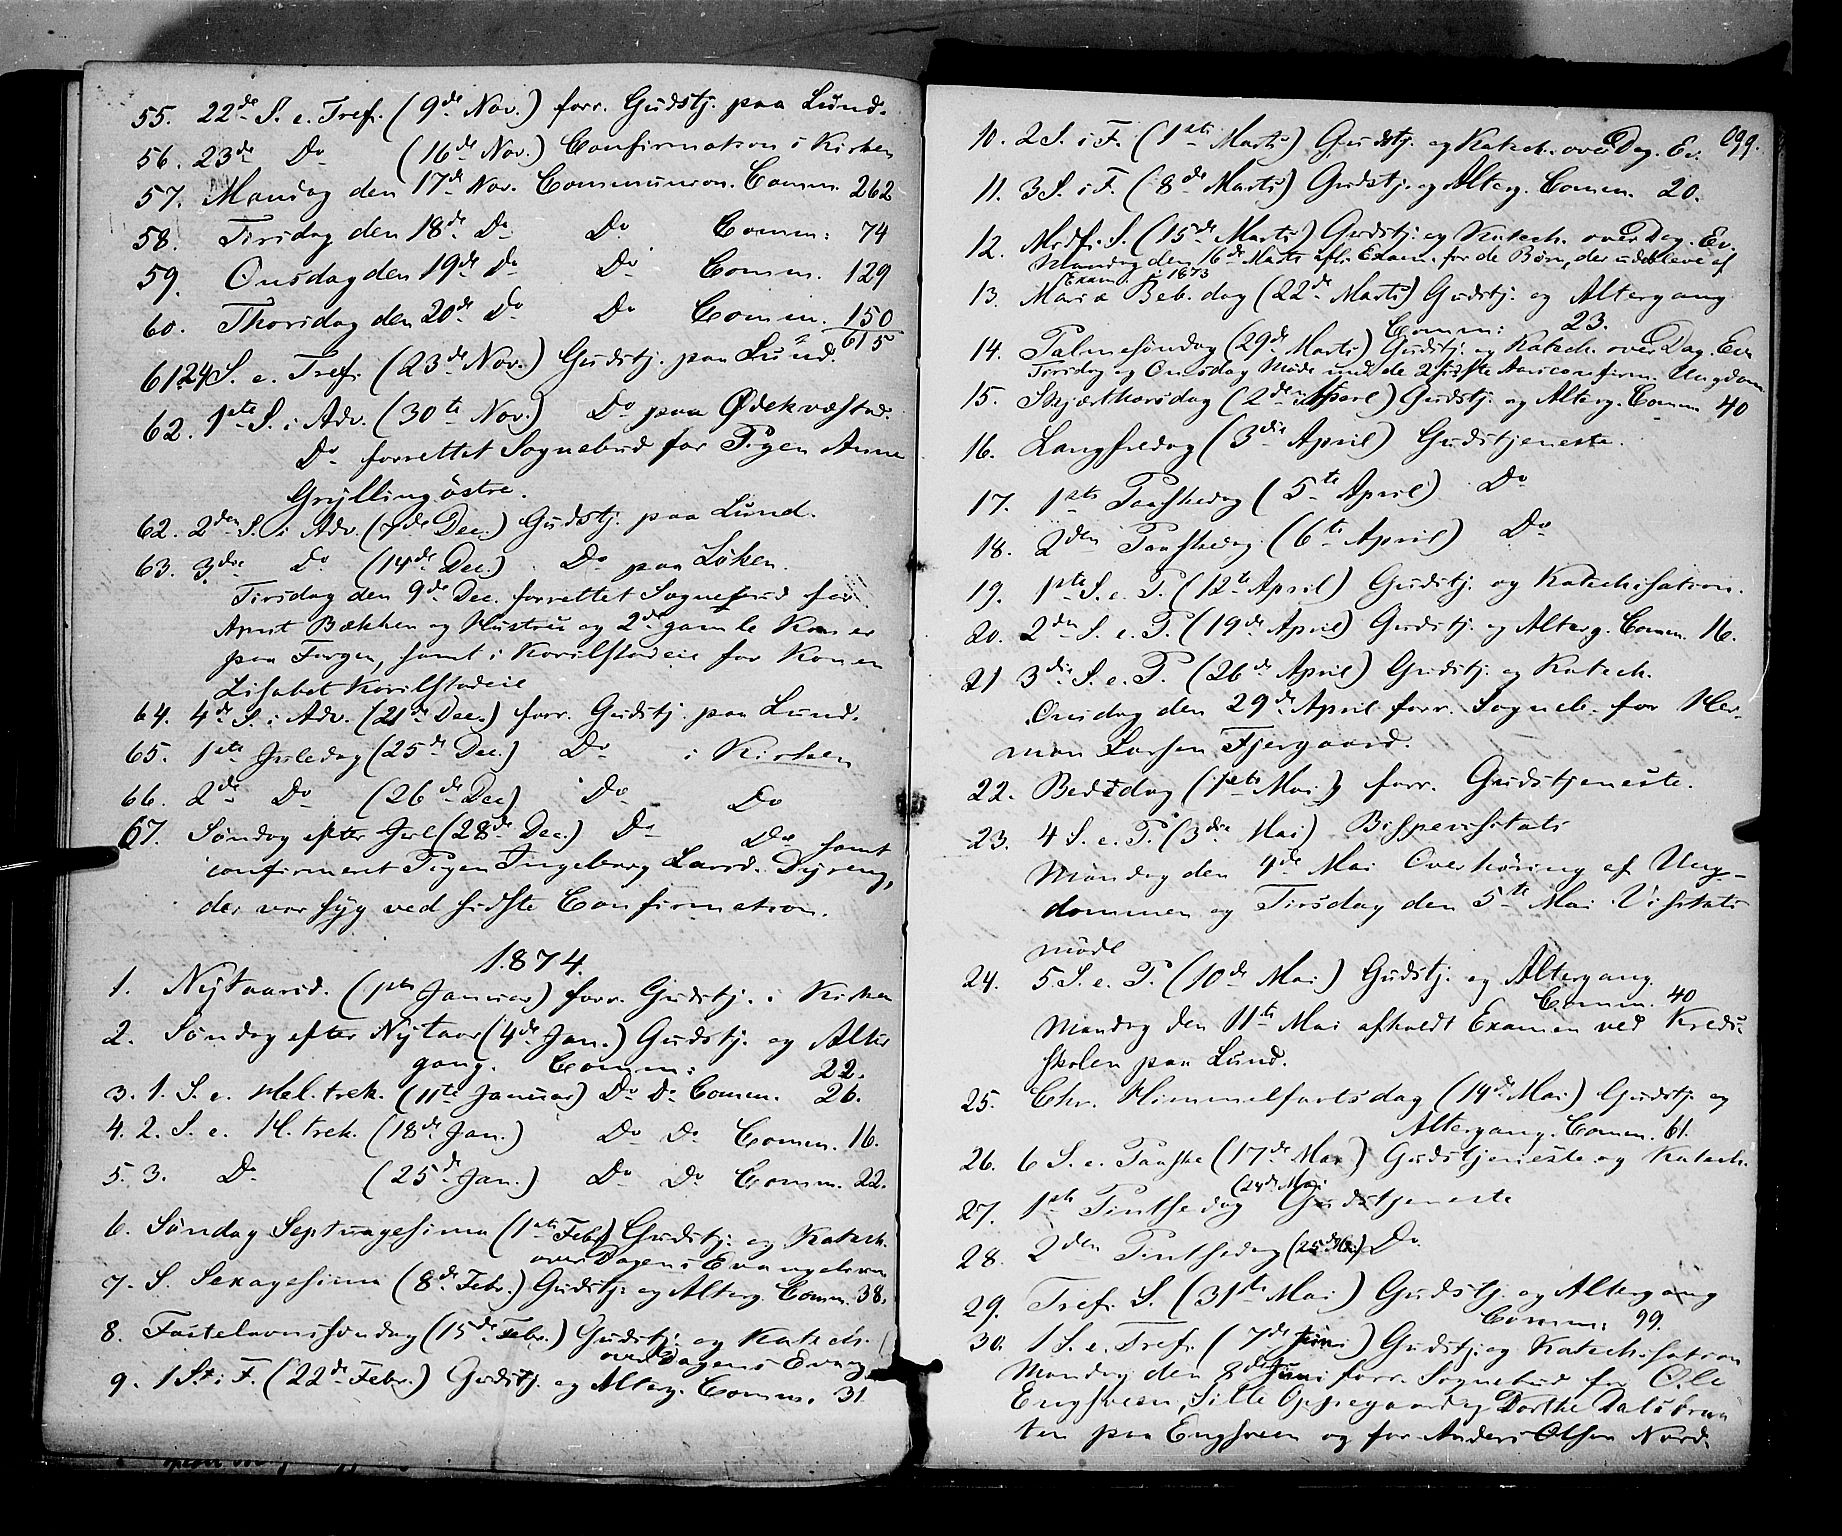 55. 22de S. e. Tref. (9de Nov.) forr. Gudstj. paa Lund.
56. 23de Do (16de Nov.) Confirmation i Kirken
57. Mandag den 17de Nov. Communion. Comm. 262
58. Tirsdag den 18de Do Do Comm: 74
59. Onsdag den 19de Do Do Comm. 129
60. Thorsdag den 20de Do Do Comm. 150
615
61 24 S. e. Tref. (23de Nov.) Gudstj. paa Lund.
62. 1ste S. i Adv. (30te Nov.) Do paa Ødekvæstad.
Do forrettet Sognebud for Pigen Anne
Grylling østre.
62. 2den S. i Adv. (7de Dec.) Gudstj. paa Lund.
63. 3die Do (14de Dec.) Do paa Löken.
Tirsdag den 9de Dec. forrettet Sognebud for
Bækken og Hustru og 2de gamle Koner
paa samt i for Konen
Lisabet
64. 4de S. i Adv. (21de Dec.) forr. Gudstj. paa Lund.
65. 1ste Juledag (25de Dec.) Do i Kirken
66. 2de Do (26de Dec) Do Do
67. Søndag efter Jul (28de Dec.) Do Do samt
confirmeret Pigen Ingeborg Larsd. Dyreng,
der var syg ved sidste Confirmation.
1874.
1. Nytaarsd. (1ste Januar) forr. Gudstj. i Kirken
2. Søndag efter Nytaar (4de Jan.) Gudstj. og Alter
gang. Comm: 22.
3. 1. S. e. Hel. trek. (11te Januar) Do Do Comm. 26.
4. 2. S. e. H. trek. (18de Jan.) Do Do Comm. 16.
5. 3. Do (25de Jan.) Do Do Comm. 22.
6. Søndag Septuagesima (1ste Febr) Gudstj. og Katech.
over Dagens Evangelium
7. S. Sexagesima (8de Febr.) Gudstj. og Alterg. Comm. 38.
8. Fastelavnssøndag (15de Febr.) Gudstj. og Katech.
over Dagens Evang
9. 1 S. i F. (22de Febr.) Gudstj. og Alterg. Comm. 31
099.
10. 2 S. i F. (1ste Marts) Gudstj. og Katech. over Dag. Ev.
11. 3 S. i F. (8de Marts) Gudstj. og Alterg. Comm. 20.
12. Midf. S. (15de Marts) Gudstj. og Katech. over Dag. Ev.
Mandag den 16de Marts Exam. for de Børn, der udebleve af
Exam. i 1873
13. Mariæ Beb. dag (22de Marts) Gudstj. og Altergang
Comm: 23.
14. Palmesöndag (29de Marts) Gudstj. og Katech. over Dag. Ev.
Tirsdag og Onsdag Møde med de 2 sidste Aars confirm. Ungdom
15. Skjærthorsdag (2de April) Gudstj. og Alterg. Comm 40
16. Langfredag (3die April) Gudstjeneste.
17. 1ste Paaskedag (5te April) Do
18. 2den Paaskedag (6te April) Do
19. 1ste S. e. P. (12te April) Gudstj. og Katechisation.
20. 2den S. e. P. (19de April) Gudstj. og Alterg. Comm. 16.
21 3die S. e. P. (26de April) Gudstj. og Katech.
Onsdag den 29de April forr. Sogneb. for Her-
man Larsen Fjergaard.
22. Bededag (1ste Mai) forr. Gudstjeneste.
23. 4 S. e. P. (3die Mai) Bispevisitats
Mandag den 4de Mai Overhöring af Ung-
dommen og Tirsdag den 5te Mai Visitats
möde
24. 5. S. e. P. (10de Mai) Gudstj. og Altergang.
Comm. 40
Mandag den 11te Mai afholdt Examen ved Kreds-
skolen paa Lund.
25. Chr. Himmelfartsdag (14de Mai) Gudstj. og
Altergang. Comm. 61.
26. 6 S. e. Paaske (17de Mai) Gudstjeneste og Katech.
27. 1ste Pintsedag (24de Mai) Gudstjeneste
28. 2den Pintsedag (25de Mai) Do
29. Tref. S. (31te Mai) Gudstj. og Altergang
Comm: 99.
30. 1 S. e. Tref. (7de Juni) Gudstj. og Katechisation
Mandag den 8de Juni forr. Sognebud for Ole
Engsveen, Sille Oppegaard og Dorthe Dalsbraa
ten paa Engsveen og for Anders Olsen Nord.